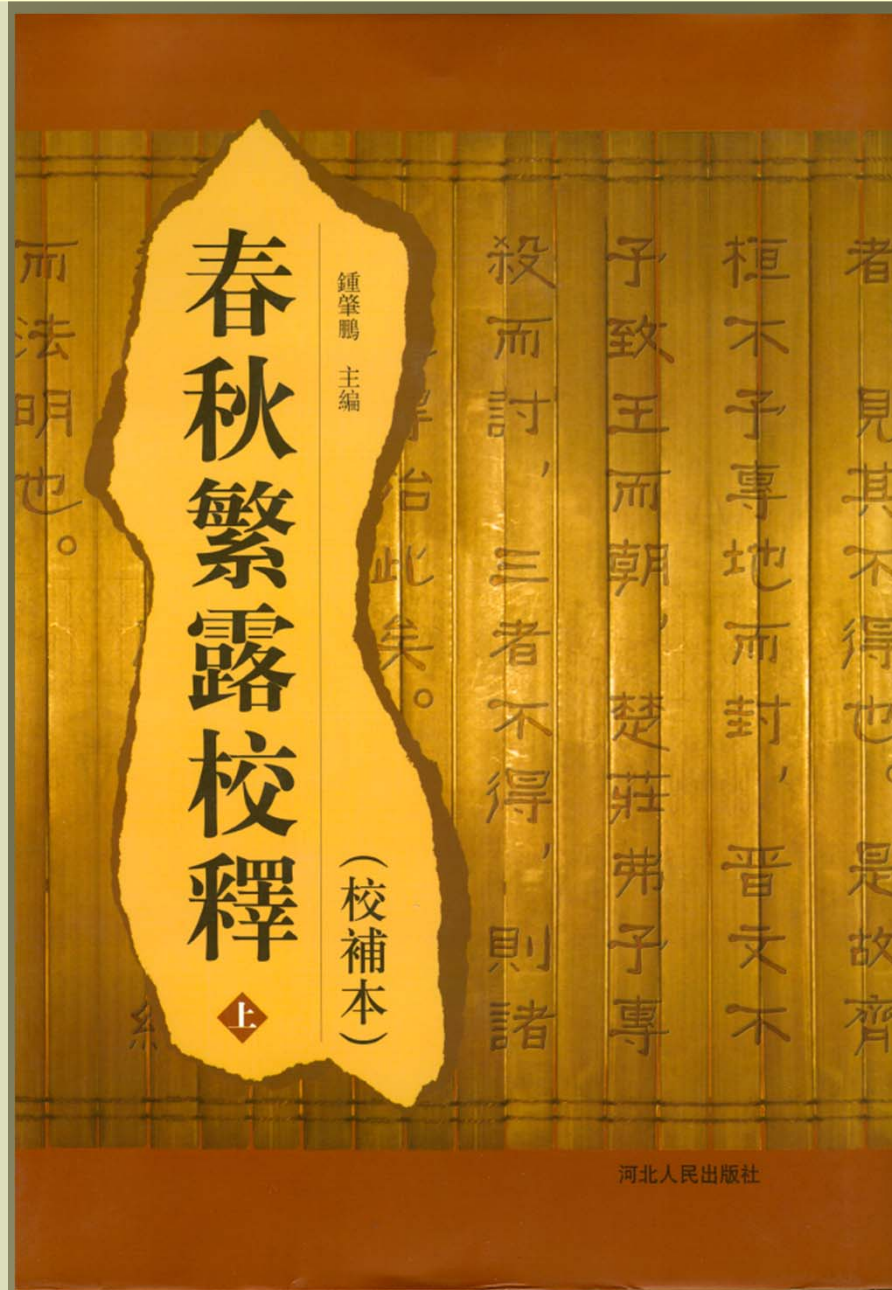 春秋繁露校釋
上
鍾肇鵬 主編
(校補本)
者 見其不得也。是故齊
桓不予專地而封,晉文不
子致王而朝,楚莊弗子專
殺而討,三者不得,則諸
此矣。
而法明也。
河北人民出版社